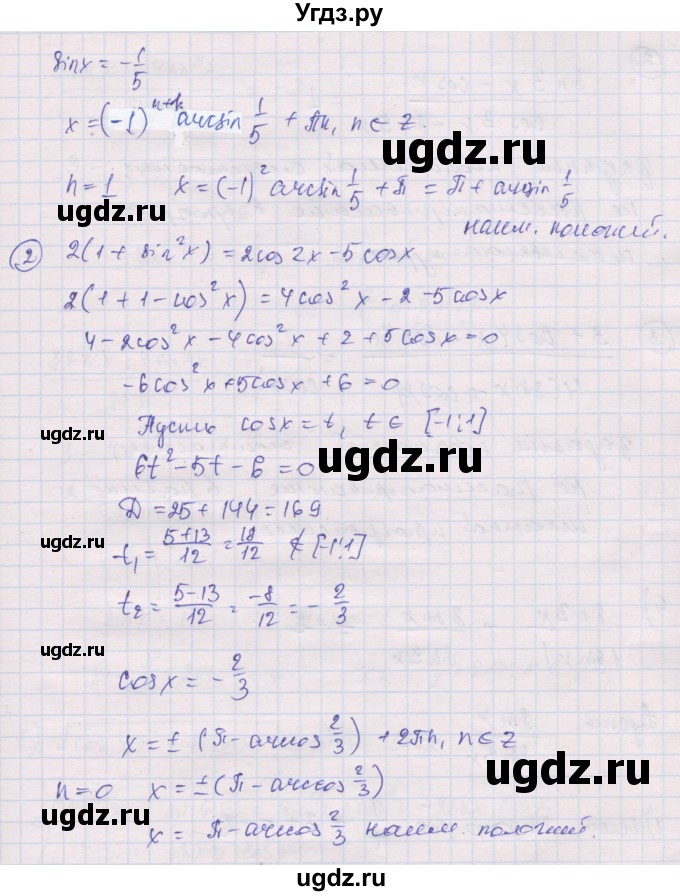 Угдз.ру
sinx = -1/5
x = (-1)^(n+1) arcsin 1/5 + πn, n ∈ Z.
ugdz.ru
n=1 x = (-1)^2 arcsin 1/5 + π = π + arcsin 1/5
ugdz.ru
наим. положит.
② 2(1 + sin²x) = 2cos2x - 5cosx
2(1+1-cos²x) = 4cos²x - 2 - 5cosx
4 - 2cos²x - 4cos²x + 2 + 5cosx = 0
ugdz.ru
-6cos²x + 5cosx + 6 = 0
Пусть cosx = t, t ∈ [-1;1]
ugdz.ru
6t² - 5t - 6 = 0
ugdz.ru
Д = 25 + 144 = 169
ugdz.ru
t₁ = (5+13)/12 = 18/12 ∉ [-1;1]
t₂ = (5-13)/12 = -8/12 = -2/3
ugdz.ru
ugdz.ru
cosx = -2/3
x = ± (π - arccos 2/3) + 2πn, n ∈ Z
ugdz.ru
n=0 x = ± (π - arccos 2/3)
ugdz.ru
x = π - arccos 2/3 наим. положит.
ugdz.ru